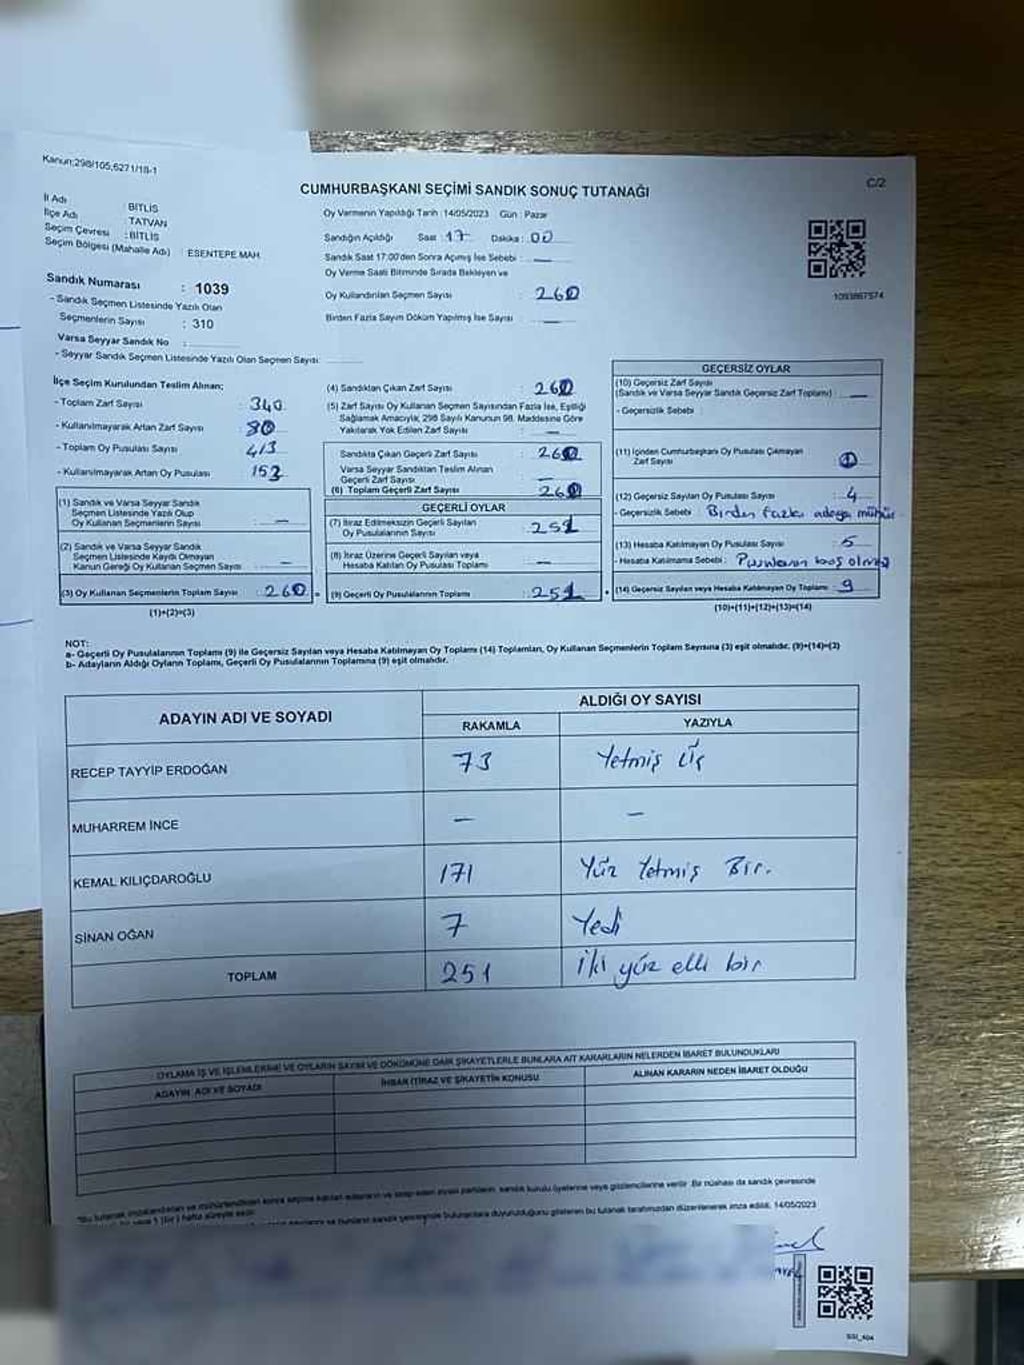 Kanun;298/105,6271/18-1
C/2
CUMHURBAŞKANI SEÇİMİ SANDIK SONUÇ TUTANAĞI
İl Adı : BİTLİS
İlçe Adı : TATVAN
Seçim Çevresi : BİTLİS
Seçim Bölgesi (Mahalle Adı) : ESENTEPE MAH.
Oy Vermenin Yapıldığı Tarih : 14/05/2023 Gün : Pazar
Sandığın Açıldığı Saat : 17 Dakika : 00
Sandık Saat 17:00'den Sonra Açımış İse Sebebi : —
Oy Verme Saati Bitiminde Sırada Bekleyen ve
Oy Kullandırılan Seçmen Sayısı : 260
Birden Fazla Sayım Döküm Yapılmış İse Sayısı : —
1093867574
Sandık Numarası : 1039
- Sandık Seçmen Listesinde Yazılı Olan
Seçmenlerin Sayısı : 310
Varsa Seyyar Sandık No :
- Seyyar Sandık Seçmen Listesinde Yazılı Olan Seçmen Sayısı:
İlçe Seçim Kurulundan Teslim Alınan;
- Toplam Zarf Sayısı : 340
- Kullanılmayarak Artan Zarf Sayısı : 80
- Toplam Oy Pusulası Sayısı : 413
- Kullanılmayarak Artan Oy Pusulası : 153
(1) Sandık ve Varsa Seyyar Sandık
Seçmen Listesinde Yazılı Olup
Oy Kullanan Seçmenlerin Sayısı : —
(2) Sandık ve Varsa Seyyar Sandık
Seçmen Listesinde Kaydı Olmayan
Kanun Gereği Oy Kullanan Seçmen Sayısı : —
(3) Oy Kullanan Seçmenlerin Toplam Sayısı : 260
(1)+(2)=(3)
(4) Sandıktan Çıkan Zarf Sayısı : 260
(5) Zarf Sayısı Oy Kullanan Seçmen Sayısından Fazla İse, Eşitliği
Sağlamak Amacıyla; 298 Sayılı Kanunun 98. Maddesine Göre
Yakılarak Yok Edilen Zarf Sayısı : —
Sandıkta Çıkan Geçerli Zarf Sayısı : 260
Varsa Seyyar Sandıktan Teslim Alınan
Geçerli Zarf Sayısı : —
(6) Toplam Geçerli Zarf Sayısı : 260
GEÇERLİ OYLAR
(7) İtiraz Edilmeksizin Geçerli Sayılan
Oy Pusulalarının Sayısı : 251
(8) İtiraz Üzerine Geçerli Sayılan veya
Hesaba Katılan Oy Pusulası Toplamı : —
(9) Geçerli Oy Pusulalarının Toplamı : 251
GEÇERSİZ OYLAR
(10) Geçersiz Zarf Sayısı
(Sandık ve Varsa Seyyar Sandık Geçersiz Zarf Toplamı) : —
- Geçersizlik Sebebi :
(11) İçinden Cumhurbaşkanı Oy Pusulası Çıkmayan
Zarf Sayısı :
(12) Geçersiz Sayılan Oy Pusulası Sayısı : 4
- Geçersizlik Sebebi : Birden fazla adaya mühür
(13) Hesaba Katılmayan Oy Pusulası Sayısı : 5
- Hesaba Katılmama Sebebi : Pusulanın boş olması
(14) Geçersiz Sayılan veya Hesaba Katılmayan Oy Toplamı : 9
(10)+(11)+(12)+(13)=(14)
NOT:
a- Geçerli Oy Pusulalarının Toplamı (9) ile Geçersiz Sayılan veya Hesaba Katılmayan Oy Toplamı (14) Toplamları, Oy Kullanan Seçmenlerin Toplam Sayısına (3) eşit olmalıdır. (9)+(14)=(3)
b- Adayların Aldığı Oyların Toplamı, Geçerli Oy Pusulalarının Toplamına (9) eşit olmalıdır.
ADAYIN ADI VE SOYADI
ALDIĞI OY SAYISI
RAKAMLA YAZIYLA
RECEP TAYYİP ERDOĞAN 73 Yetmiş Üç
MUHARREM İNCE — —
KEMAL KILIÇDAROĞLU 171 Yüz Yetmiş Bir.
SİNAN OĞAN 7 Yedi
TOPLAM 251 İki yüz elli bir
OYLAMA İŞ VE İŞLEMLERİNE VE OYLARIN SAYIM VE DÖKÜMÜNE DAİR ŞİKAYETLERLE BUNLARA AİT KARARLARIN NELERDEN İBARET BULUNDUKLARI
ADAYIN ADI VE SOYADI İHBAR İTİRAZ VE ŞİKAYETİN KONUSU ALINAN KARARIN NEDEN İBARET OLDUĞU